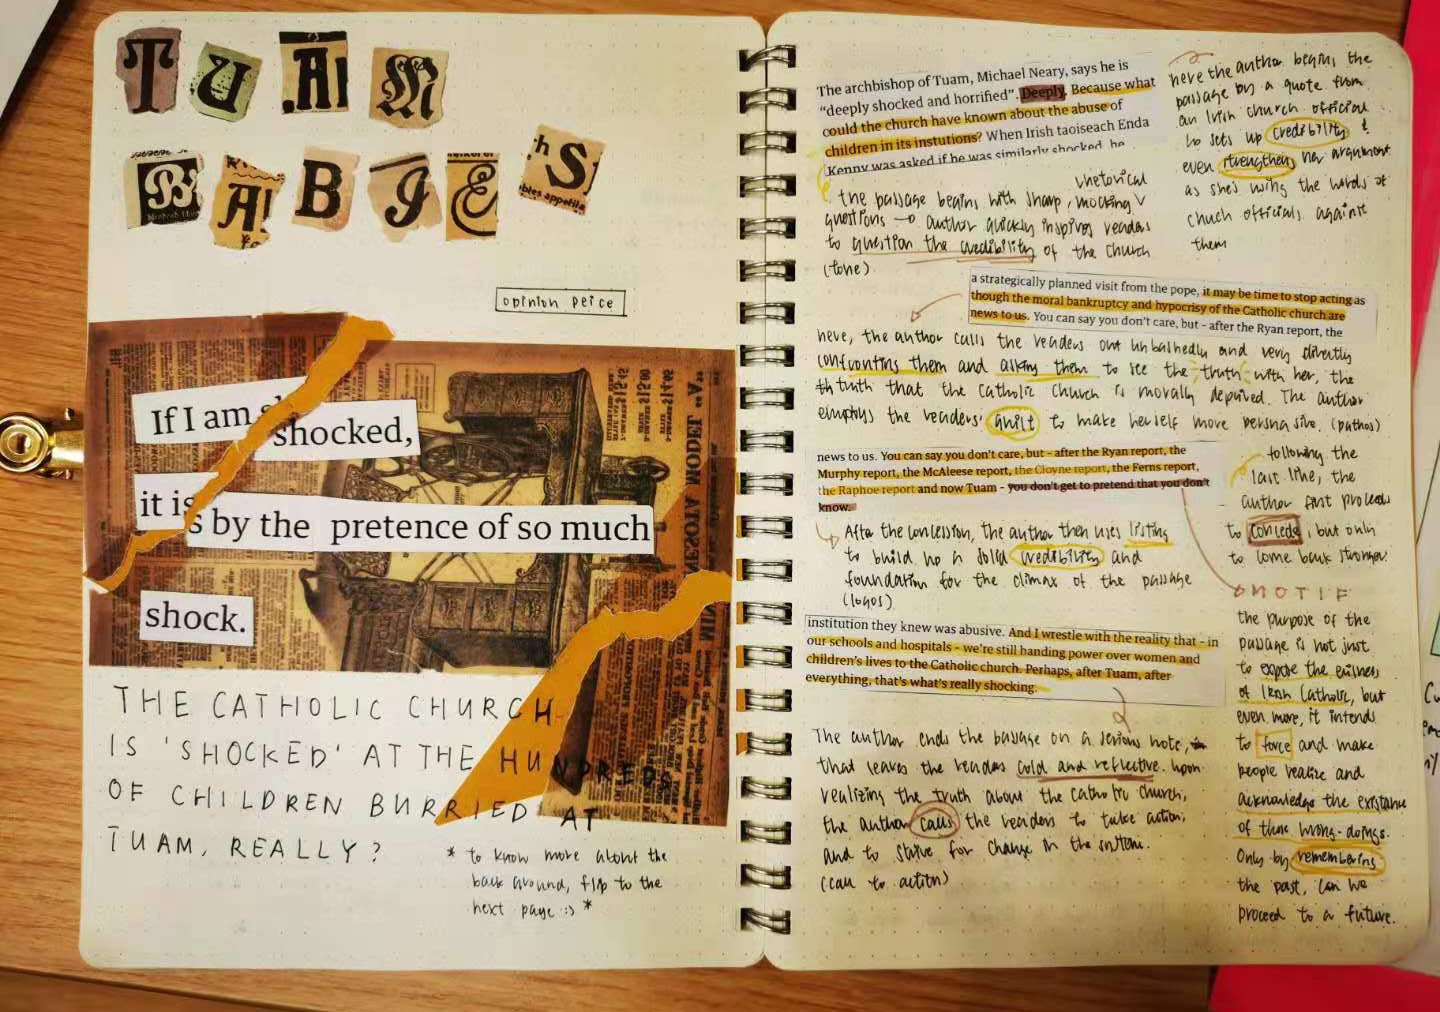 TUAM
BABIES
opinion peice
If I am shocked,
it is by the pretence of so much
shock.
THE CATHOLIC CHURCH
IS 'SHOCKED' AT THE HUNDREDS
OF CHILDREN BURRIED AT
TUAM, REALLY?
* to know more about the
back ground, flip to the
next page :) *
The archbishop of Tuam, Michael Neary, says he is
"deeply shocked and horrified". Deeply. Because what
could the church have known about the abuse of
children in its instutions? When Irish taoiseach Enda
Kenny was asked if he was similarly shocked, he
here the author begins the
passage by a quote from
an Irish church official
to sets up credibility &
even strengthen her argument
as she's using the words of
church officials against
them
the passage begins with sharp, mocking rhetorical
questions → author quickly inspires readers
to question the credibility of the church
(tone)
a strategically planned visit from the pope, it may be time to stop acting as
though the moral bankruptcy and hypocrisy of the Catholic church are
news to us. You can say you don't care, but - after the Ryan report, the
here, the author calls the readers out unbashedly and very directly
confronting them and asking them to see the truth with her, the
truth that the Catholic Church is morally deprived. The author
employs the readers' guilt to make herself more persuasive. (pathos)
news to us. You can say you don't care, but - after the Ryan report, the
Murphy report, the McAleese report, the Cloyne report, the Ferns report,
the Raphoe report and now Tuam - you don't get to pretend that you don't
know.
following the
last line, the
author first proceeds
to concede, but only
to come back stronger.
After the concession, the author then uses listing
to build up a solid credibility and
foundation for the climax of the passage
(logos)
MOTIF
the purpose of the
passage is not just
to expose the
of Irish Catholic, but
even more, it intends
to force and make
people realize and
acknowledge the existance
of these wrong-doings.
Only by remembering
the past, can we
proceed to a future.
institution they knew was abusive. And I wrestle with the reality that - in
our schools and hospitals - we're still handing power over women and
children's lives to the Catholic church. Perhaps, after Tuam, after
everything, that's what's really shocking.
The author ends the passage on a serious note,
that leaves the readers cold and reflective. Upon
realizing the truth about the Catholic church,
the author calls the readers to take action;
and to strive for change in the system.
(call to action)